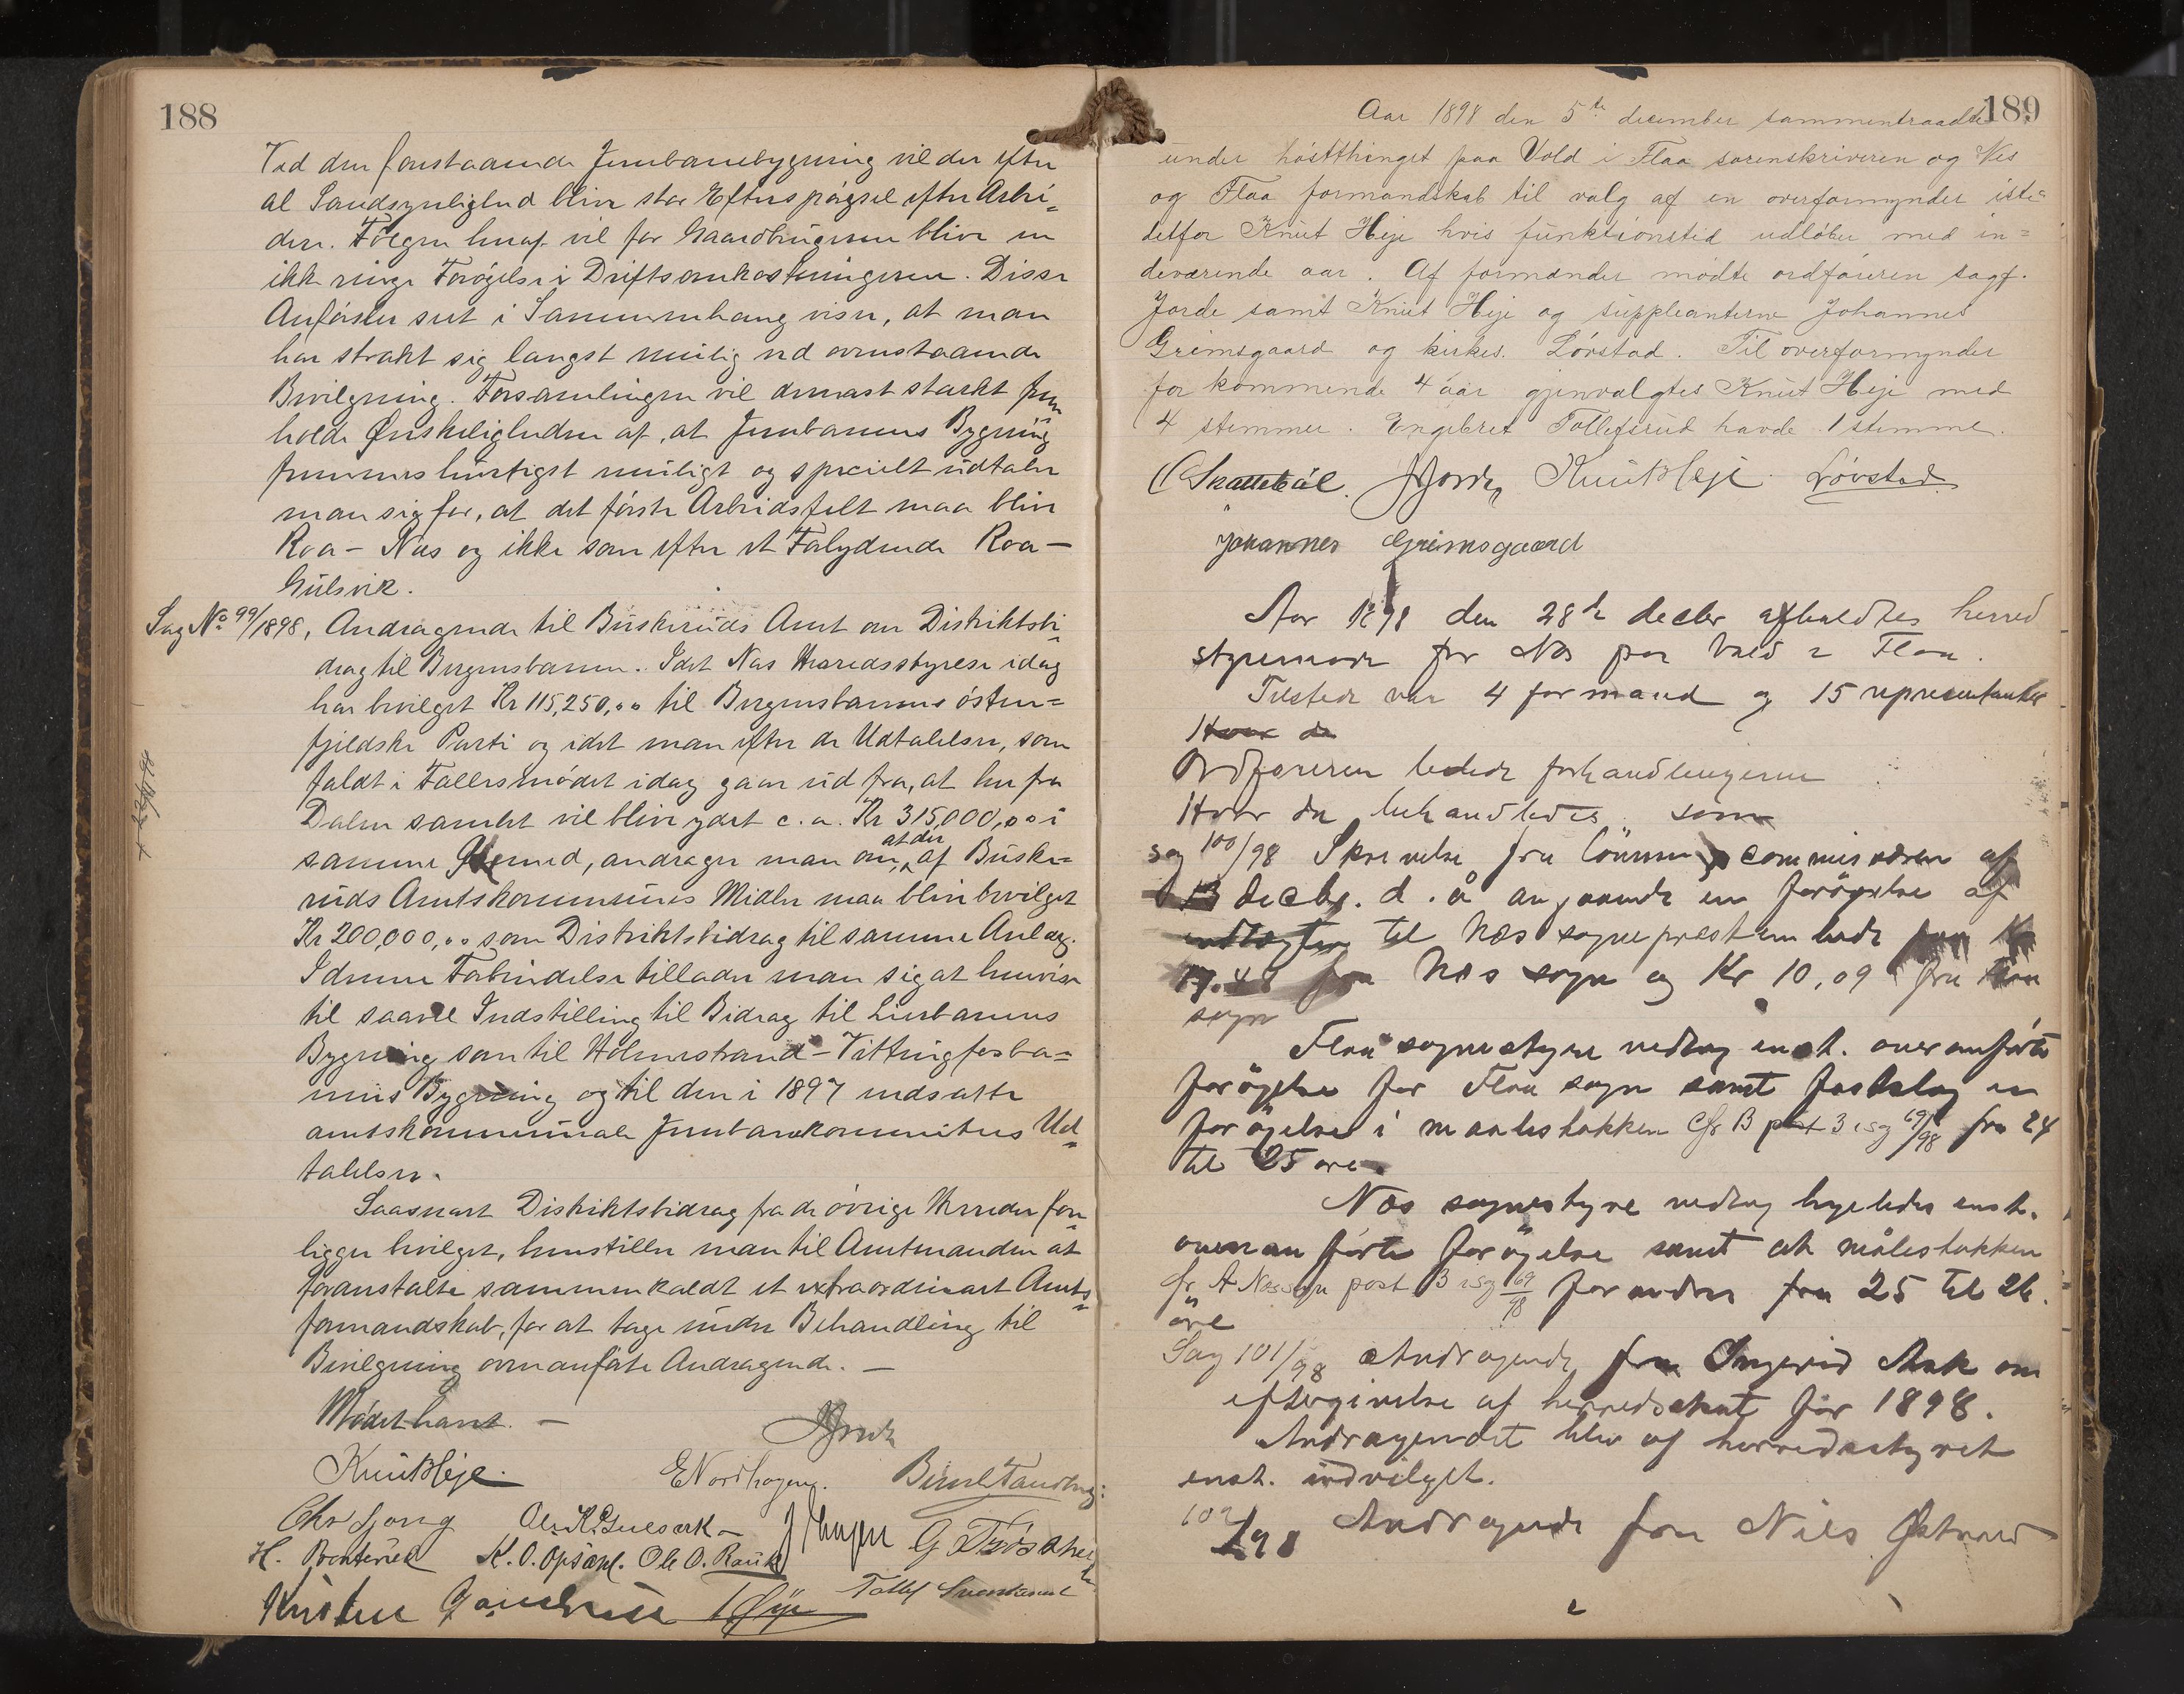 188
Ved den forestaaende Jernbanebygning vil der efter
al Sandsynlighed blive stor Efterspørgsel efter Arbei-
dere. Følgen heraf vil for Gaardbrugerne blive en
ikke ringe Forøgelse i Driftsomkostningerne. Disse
Anførsler seet i Sammenhæng viser, at man
har strakt sig længst mulig ved ovenstaaende
Bevilgning. Forsamlingen vil dernæst stærkt frem
holde Ønskeligheden af, at Jernbanens Bygning
fremmes hurtigst muligt og specielt udtaler
man sig for, at det første Arbeidsfelt maa blive
Roa - Næs og ikke som efter et Forlydende Roa -
Gulsvik.
Sag No 99/1898, Andragende til Buskeruds Amt om Distriktsbi-
drag til Bergensbanen. Idet Næs Herredsstyrese idag
har bevilget Kr 115,250,00 til Bergensbanens østen=
fjeldske Parti og idet man efter de Udtalelser, som
faldt i Fællesmødet idag gaar ud fra, at her fra
Dalen samlet vil blive ydet c. a. Kr 315,000,00 i
samme Øiemed, andrager man om, at der af Buske=
ruds Amtskommunes Midler maa blive bevilget
Kr 200,000,00 som Distriktsbidrag til samme Anlæg.
I denne Forbindelse tillader man sig at henvise
til saavel Indstilling til Bidrag til Lierbanens
Bygning som til Holmestrand - Vittingfosba=
nens Bygning og til den i 1897 nedsatte
amtskommunale Jernbanekomunitees Ud-
talelser.
Saasnart Distriktsbidrag fra de øvrige Herreder fore-
ligger bevilget, henstiller man til Amtmanden at
foranstalte sammenkaldt et extraordinært Amts-
formandskab, for at tage under Behandling til
Bevilgning ovenanførte Andragende. —
Mødet hævet. —
Knut Heje. E Nordhagen.
Chr Ljong
K. O. Opsahl. Ole O. Rauk
189
Aar 1898 den 5te december sammentraadte
under høstthinget paa Vold i Flaa sorenskriveren og Nes
og Flaa formandskab til valg af en overformynder iste=
detfor Knut Heje hvis funktionstid udløber med in=
deværende aar. Af formænder mødte ordføreren sagf.
Jorde samt Knut Heje og suppleanterne Johannes
Grimsgaard og kirkes. Lövstad. Til overformynder
for kommende 4 aar gjenvalgtes Knut Heje med
4 stemmer. Engebret Tollefsrud havde 1 stemme.
C Skattebøl. Jorde Knut Heje Lövstad.
Johannes Grimsgaard
Aar 1898 den 28de decbr afholdtes herred
styremøde for Nes paa Vold i Flaa.
Tilstede var 4 formænd og 15 representanter
Hvor de
Ordføreren ledede forhandlingerne
Hvor da behandledes som
sag 100/98 Skrivelse fra Lönningscommisæren af
13 decbr. d. å angaaende en forögelse af
indtægten til Næs sognepræstembede fra Kr
17.48 fra Næs sogn og Kr 10,09 fra Flaa
sogn
Flaa sognestyre vedtog enst. overanförte
forögelse for Flaa sogn samt fastslog en
forögelse i maalestokken Cfr B post 3 i sag 69/98 fra 24
til 25 øre.
Næs sognestyre vedtog ligeledes enst.
ovenanførte forögelse samt at målestokken
fr A Næs sogn post 3 i sag 69/98 forandres fra 25 til 26.
öre
Sag 101/98 Andragende fra Ingerid Aak om
eftergivelse af herredsskat for 1898.
Andragendet blev af herredsstyret
enst. indvilget.
102/98 Andragende fra Nils